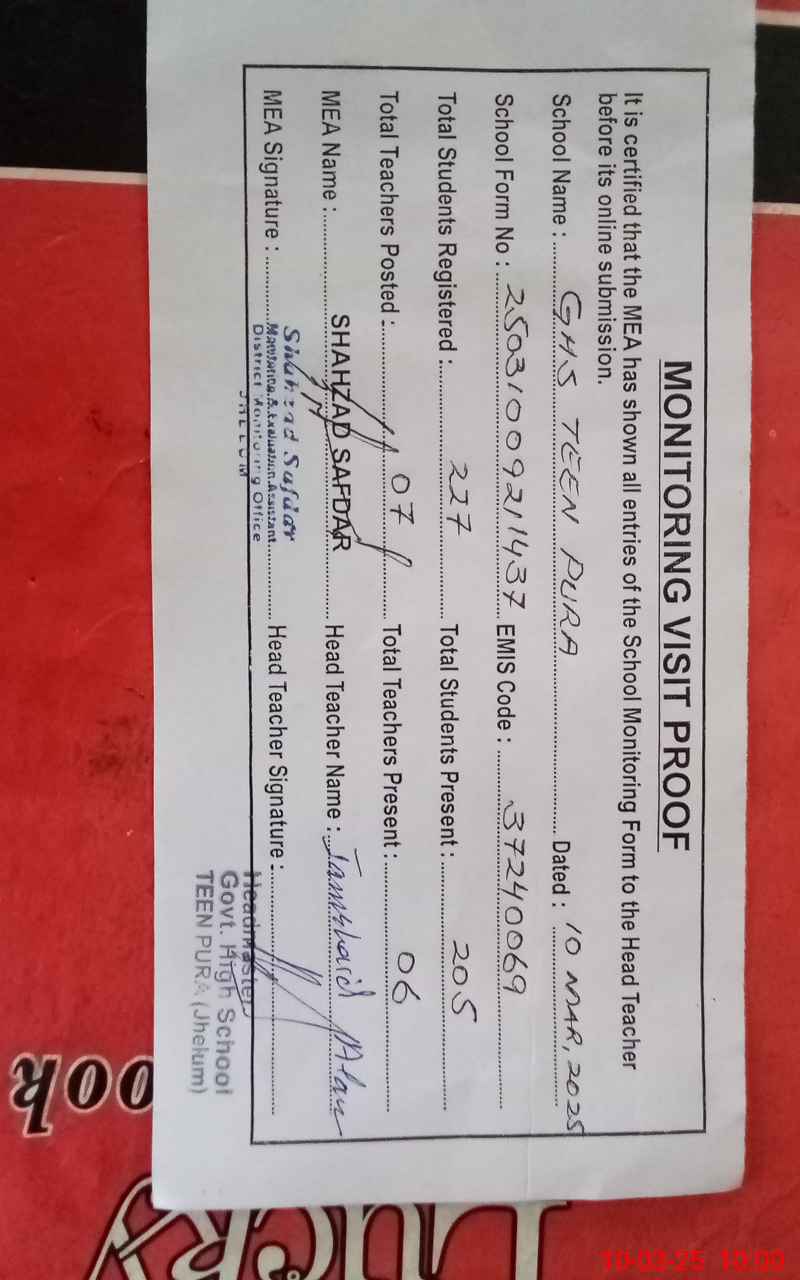 MONITORING VISIT PROOF
It is certified that the MEA has shown all entries of the School Monitoring Form to the Head Teacher
before its online submission.
School Name : GHS TEEN PURA Dated : 10 MAR, 2025
School Form No : 25031009211437 EMIS Code : 37240069
Total Students Registered : 227 Total Students Present : 205
Total Teachers Posted : 07 Total Teachers Present : 06
MEA Name : SHAHZAD SAFDAR Head Teacher Name : Jamshaid
MEA Signature : Head Teacher Signature :
Shahzad Safdar
Monitoring & Evaluation Assistant
District Monitoring Office
JHELUM
Headmaster
Govt. High School
TEEN PURA (Jhelum)
ook
Lucky
10-03-25 10:00